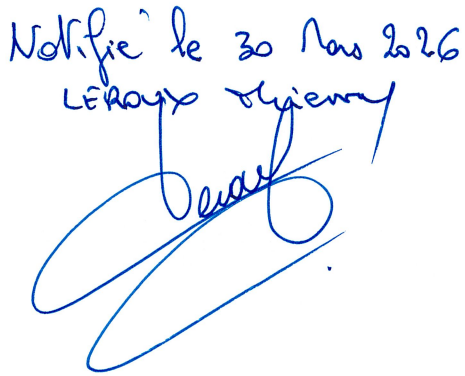 Notifié le 30 Mars 2026
LEROUX Thierry